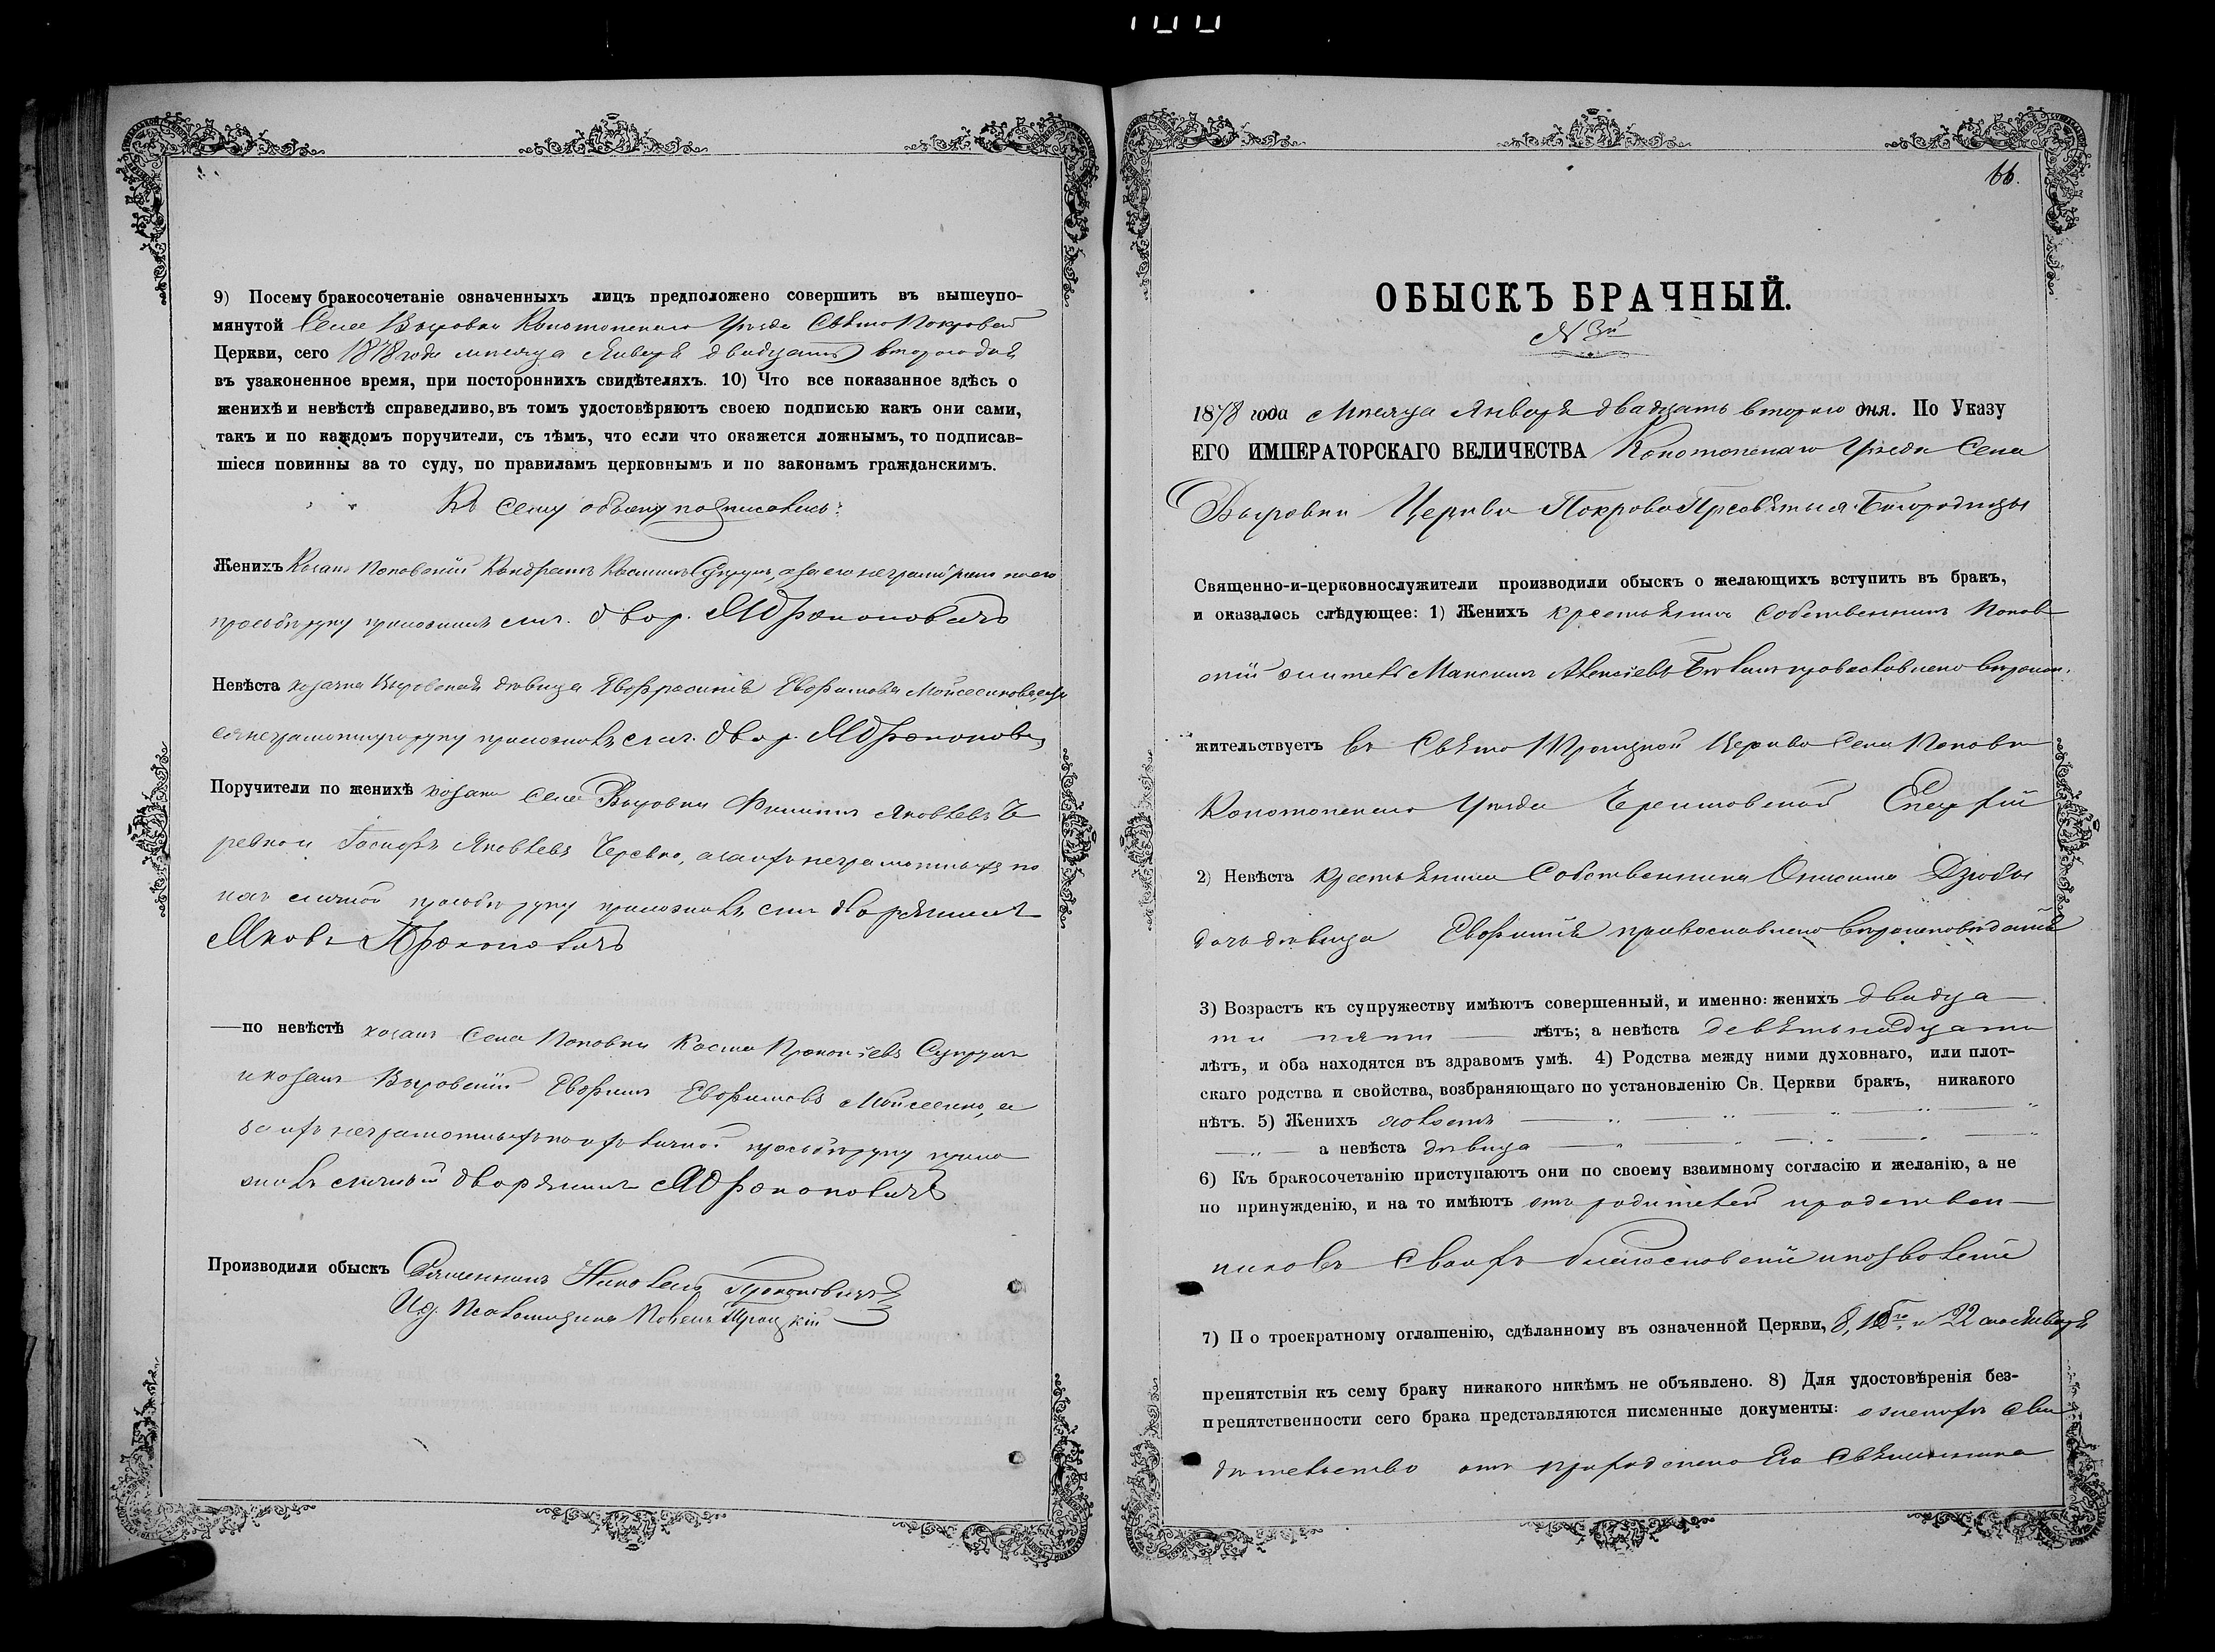 9) Посему бракосочетаніе означенныхъ лицъ предположено совершить въ вышеупо-
мянутой Селе Выровки Конотопскаго Уѣзда Свято Покровской
Церкви, сего 1878 года мѣсяца Января двадцать втораго дня
въ узаконенное время, при постороннихъ свидѣтеляхъ. 10) Что все показанное здѣсь о
женихѣ и невѣстѣ справедливо, въ томъ удостовѣряютъ своею подписью какъ они сами,
такъ и по каждомъ поручители, съ тѣмъ, что если что окажется ложнымъ, то подписав-
шіеся повинны за то суду, по правиламъ церковнымъ и по законамъ гражданскимъ.
Къ сему обыску подписались:
Женихъ Козакъ Поповскій Кондратъ Косминъ Супрунъ, а за его неграмотнаго по его
просьбѣ руку приложилъ двор. Я Прокоповичъ
Невѣста козачка Выровская дѣвица Евфросинія Евфимова Мойсеенкова, а за
ея неграмотную руку приложилъ двор. Я Прокопович
Поручители по женихѣ козаки Села Выровки Филиппъ Яковлевъ Че
ревко и Іосифъ Яковлевъ Черевко, а за ихъ неграмотныхъ по
ихъ личной просьбѣ руку приложилъ дворянинъ
Яковъ Прокоповичъ
—по невѣстѣ козакъ Села Поповки Косма Прокопіевъ Супрунъ
и козакъ Выровскій Евфимъ Евфимовъ Мойсеенко, а
за ихъ неграмотныхъ по ихъ личной просьбѣ руку прило
жилъ дворянинъ Я Прокоповичъ
Производили обыскъ Священникъ Николай Прокоповичъ
И.д. Псаломщика Павелъ Троцкій
66.
ОБЫСКЪ БРАЧНЫЙ.
N 3й
1878 года Мѣсяца Января двадцать втораго дня. По Указу
ЕГО ИМПЕРАТОРСКАГО ВЕЛИЧЕСТВА Конотопскаго Уѣзда Села
Выровки Церкви Покрова Пресвятыя Богородицы
Священно-и-церковнослужители производили обыскъ о желающихъ вступить въ бракъ,
и оказалось слѣдующее: 1) Женихъ крестьянинъ собственникъ Попов
скій житель Максимъ Алексіевъ православнаго вѣроисп.
жительствуетъ въ Свято Троицкой Церкви Села Поповки
Конотопскаго Уѣзда Черниговской Епархіи
2) Невѣста крестьянина Собственника Онисима Дзюбы
дочь дѣвица Евфимія православнаго вѣроисповѣданія
3) Возрастъ къ супружеству имѣютъ совершенный, и именно: женихъ двадца
ти пяти — лѣтъ; а невѣста девятьнадцати
лѣтъ, и оба находятся въ здравомъ умѣ. 4) Родства между ними духовнаго, или плот-
скаго родства и свойства, возбраняющаго по установленію Св. Церкви бракъ, никакого
нѣтъ. 5) Женихъ холостъ
а невѣста дѣвица
6) Къ бракосочетанію приступаютъ они по своему взаимному согласію и желанію, а не
по принужденію, и на то имѣютъ отъ родителей и родствен
никовъ своихъ благословеніе и позволеніе
7) По троекратному оглашенію, сдѣланному въ означенной Церкви, 8, 15го и 22 Января
препятствія къ сему браку никакого никѣмъ не объявлено. 8) Для удостовѣренія без-
препятственности сего брака представляются писменные документы: о женихѣ сви
дѣтельство отъ приходскаго Его Священника